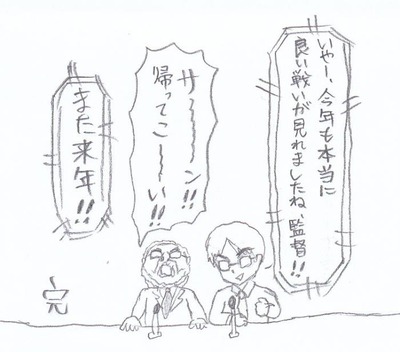 いやー、今年も本当に
良い戦いが見れましたね、監督!!
サ〜〜〜ン!!
帰ってこ〜〜い!!
また来年!!
完